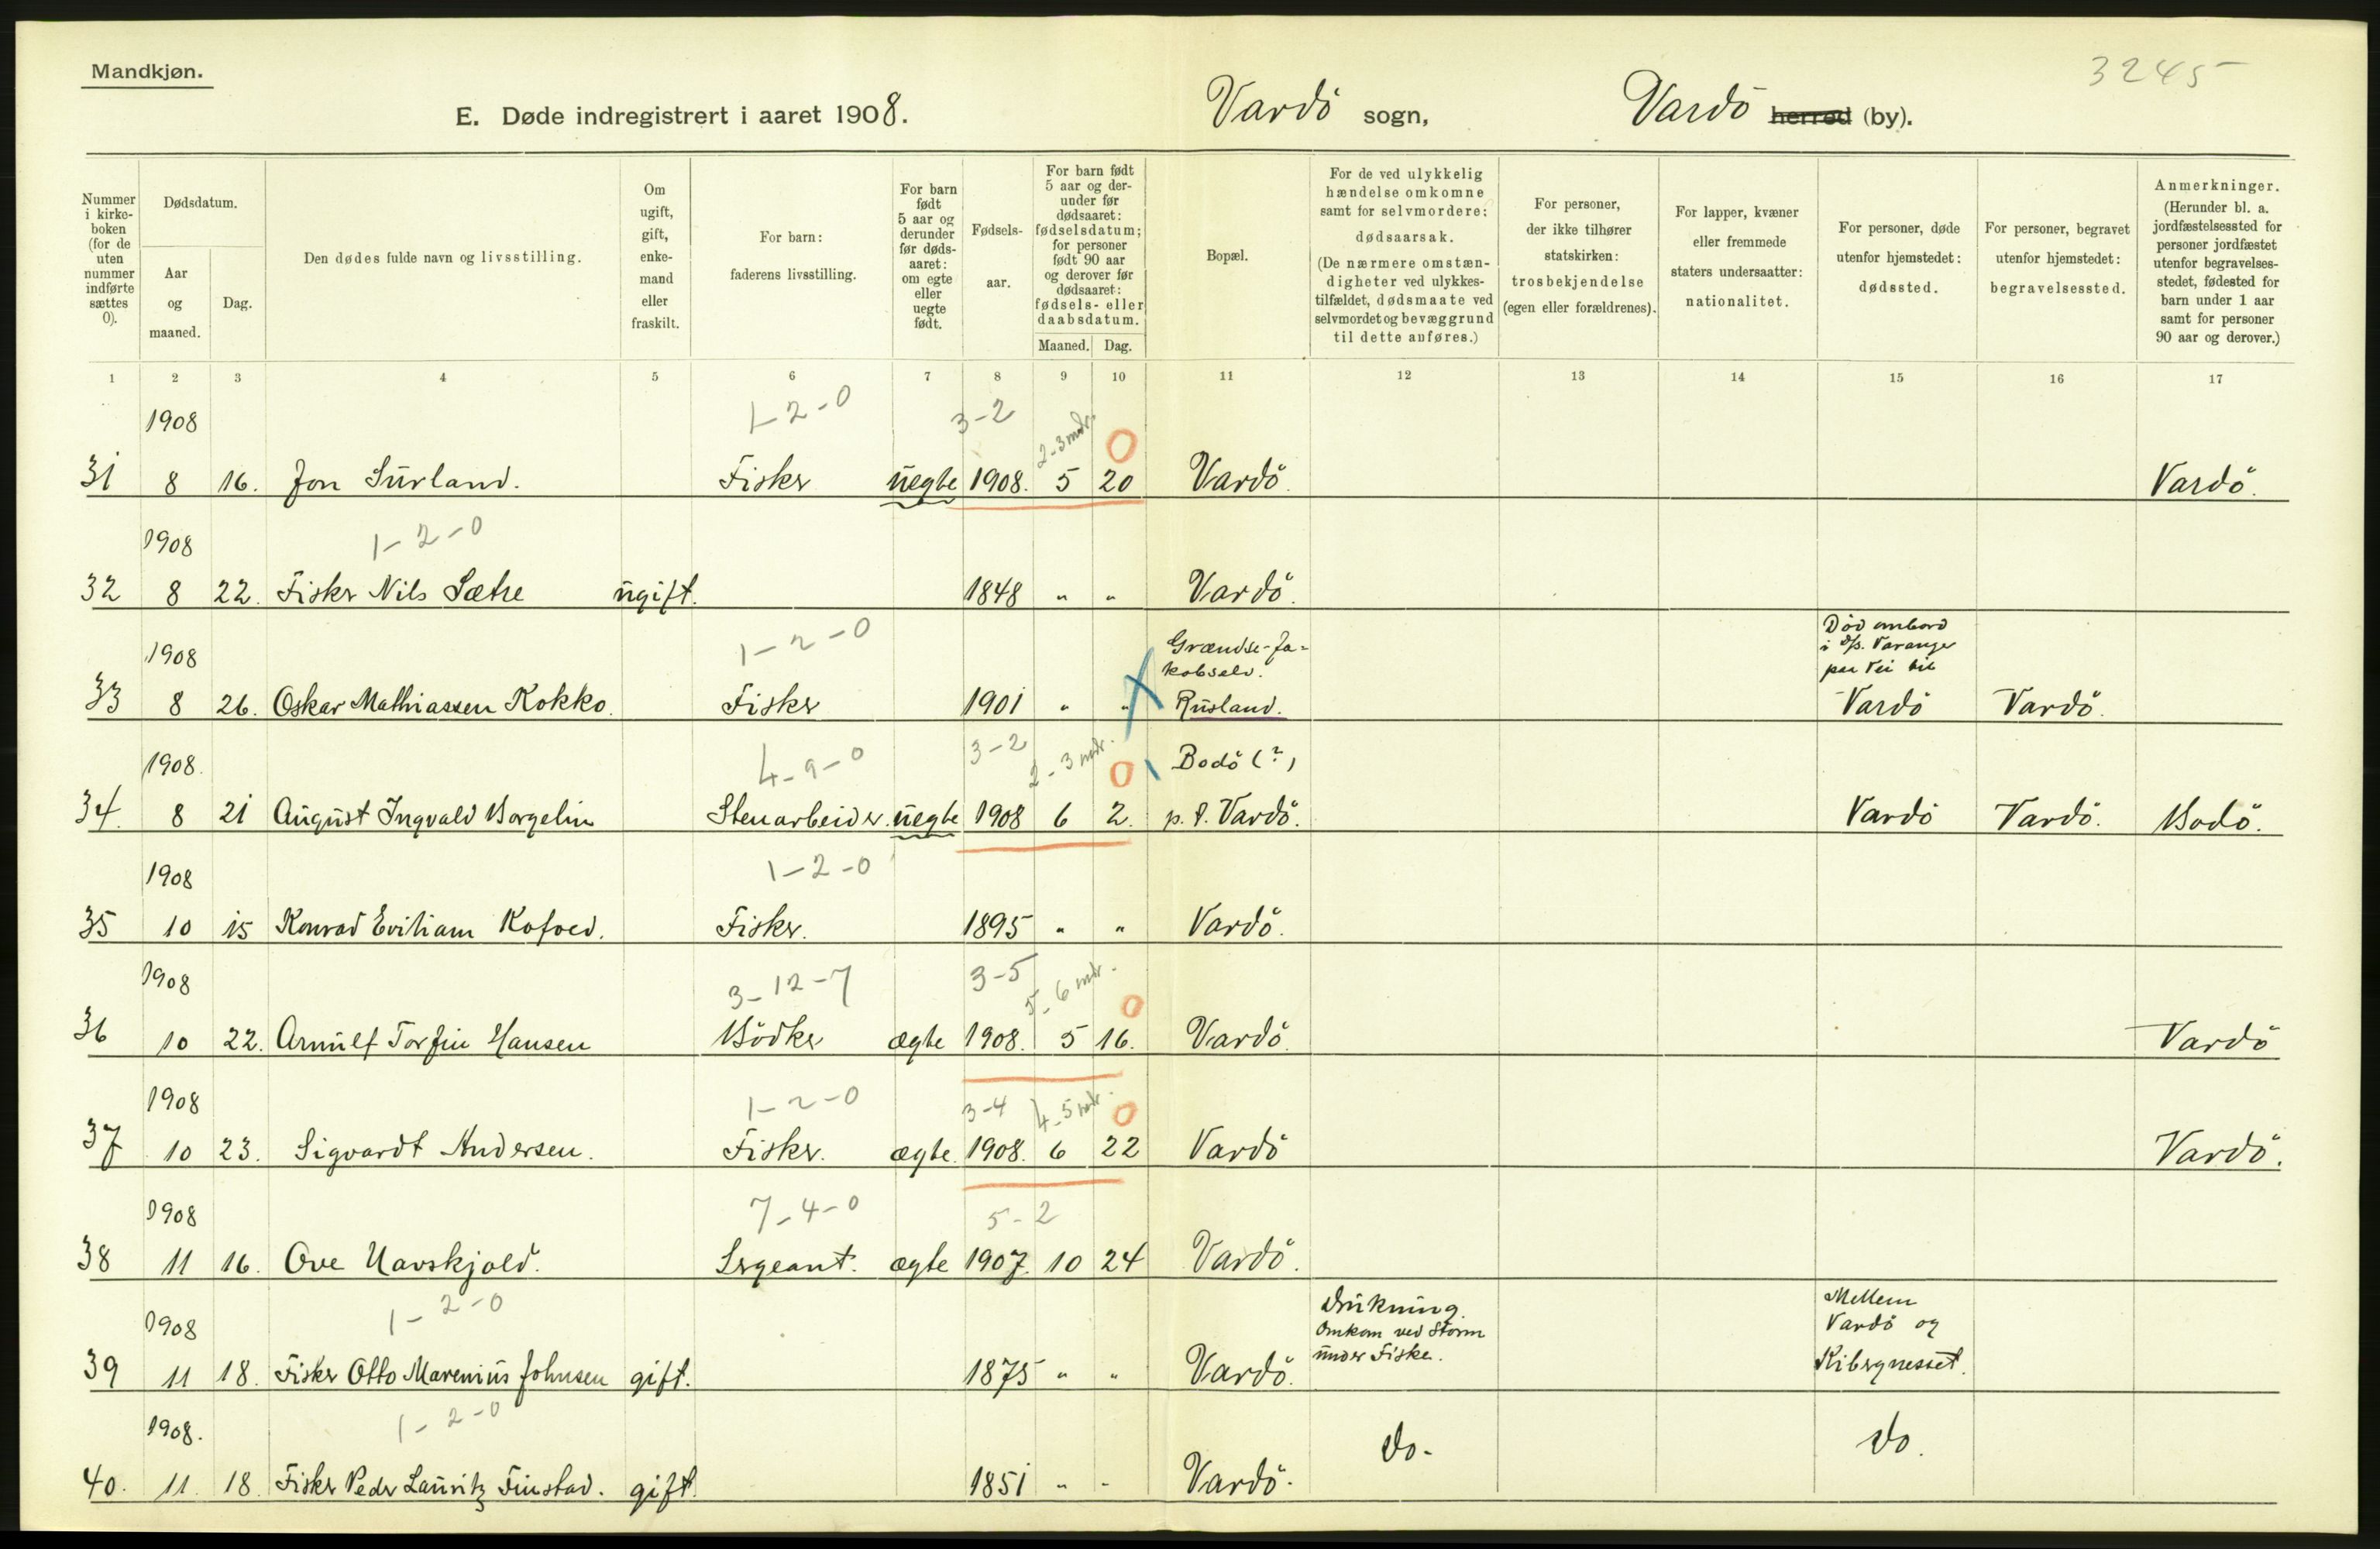 Mandkjøn.
3245
E. Døde indregistrert i aaret 1908.
Vardö sogn, Vardö herred (by).
Nummer i kirke-boken (for de uten nummer indførte sættes 0).
Dødsdatum.
Aar og maaned.
Dag.
Den dødes fulde navn og livsstilling.
Om ugift, gift, enke-mand eller fraskilt.
For barn: faderens livsstilling.
For barn født 5 aar og derunder før døds-aaret: om egte eller uegte født.
Fødsels-aar.
For barn født 5 aar og der-under før dødsaaret: fødselsdatum; for personer født 90 aar og derover før dødsaaret: fødsels- eller daabsdatum.
Maaned. Dag.
Bopæl.
For de ved ulykkelig hændelse omkomne samt for selvmordere: dødsaarsak. (De nærmere omstæn-digheter ved ulykkes-tilfældet, dødsmaate ved selvmordet og bevæggrund til dette anføres.)
For personer, der ikke tilhører statskirken: trosbekjendelse (egen eller forældrenes).
For lapper, kvæner eller fremmede staters undersaatter: nationalitet.
For personer, døde utenfor hjemstedet: dødssted.
For personer, begravet utenfor hjemstedet: begravelsessted.
Anmerkninger. (Herunder bl. a. jordfæstelsessted for personer jordfæstet utenfor begravelses-stedet, fødested for barn under 1 aar samt for personer 90 aar og derover.)
1 2 3 4 5 6 7 8 9 10 11 12 13 14 15 16 17
1908 1-2-0 3-2 2-3 mdr. 0
31 8 16. Jon Surland. Fisker uegte 1908. 5 20 Vardö. Vardö.
1908 1-2-0
32 8 22. Fisker Nils Sætre ugift. 1848 " " Vardö.
1908 1-2-0 Grændse-Ja-kobselv. Död ombord i D/s. Varanger paa Vei til
33 8 26. Oskar Mathiassen Kokko. Fisker 1901 " " Rusland. Vardö Vardö.
1908. 4-9-0 3-2 2-3 mdr. 0 Bodö (?)
34. 8 21 August Ingvald Borgelin Stenarbeider. uegte 1908 6 2. p. t. Vardö. Vardö Vardö. Bodö.
1908 1-2-0
35 10 15 Konrad Eviliam Kofoed. Fisker. 1895 " " Vardö.
1908 3-12-7 3-5 5-6 mdr. 0
36 10 22. Arnulf Torfin Hansen Bödker ægte 1908. 5 16. Vardö. Vardö
1908 1-2-0 3-4 4-5 mdr. 0
37 10 23. Sigvardt Andersen. Fisker. ægte. 1908. 6 22 Vardö Vardö.
1908 7-4-0 5-2
38 11 16. Ove Navskjold. Sergeant. ægte 1907. 10 24 Vardö.
1908 1-2-0 Drukning. Omkom ved Storm under Fiske. Mellem Vardö og
39 11 18. Fisker Otto Marenius Johnsen gift. 1875 " " Vardö. Kibergnesset.
1908. 1-2-0 do. do.
40. 11. 18. Fisker Peder Lauritz Finstad. gift. 1851 " " Vardö.